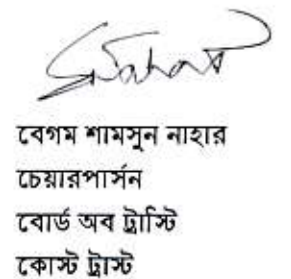 বেগম শামসুন নাহার
চেয়ারপার্সন
বোর্ড অব ট্রাস্টি
কোস্ট ট্রাস্ট